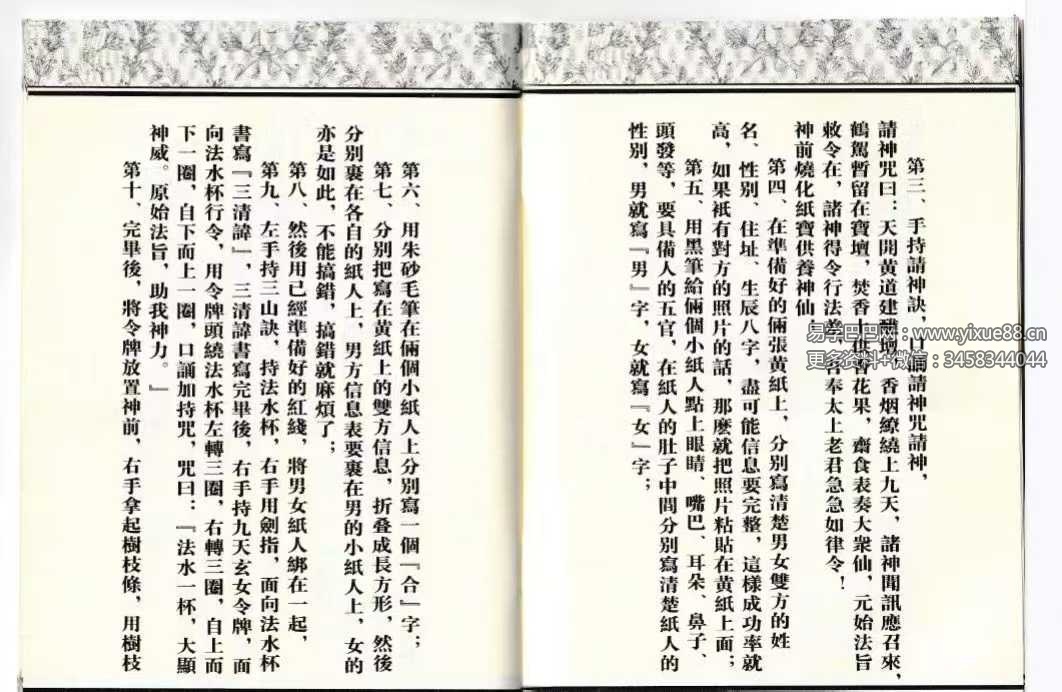 第三、手持請神訣，口誦請神咒請神，
請神咒曰：天開黄道建醮壇，香烟繚繞上九天，諸神聞訊應召來，
鶴駕暫留在寶壇，焚香十供香花果，齋食表奏大衆仙，元始法旨
敕令在，諸神得令行法善，各奉太上老君急急如律令！
神前燒化紙寶供養神仙
第四、在準備好的倆張黄紙上，分别寫清楚男女雙方的姓
名、性别、住址、生辰八字，盡可能信息要完整，這樣成功率就
高，如果衹有對方的照片的話，那麽就把照片粘貼在黄紙上面；
第五、用黑筆給倆個小紙人點上眼睛、嘴巴、耳朵、鼻子、
頭發等，要具備人的五官，在紙人的肚子中間分别寫清楚紙人的
性别，男就寫『男』字，女就寫『女』字；
第六、用朱砂毛筆在倆個小紙人上分别寫一個『合』字；
第七、分别把寫在黄紙上的雙方信息，折叠成長方形，然後
分别裹在各自的紙人上，男方信息表要裹在男的小紙人上，女的
亦是如此，不能搞錯，搞錯就麻煩了；
第八、然後用已經準備好的紅綫，將男女紙人綁在一起，
第九、左手持三山訣，持法水杯，右手用劍指，面向法水杯
書寫『三清諱』，三清諱書寫完畢後，右手持九天玄女令牌，面
向法水杯行令，用令牌頭繞法水杯左轉三圈，右轉三圈，自上而
下一圈，自下而上一圈，口誦加持咒，咒曰：『法水一杯，大顯
神威。原始法旨，助我神力。』
第十、完畢後，將令牌放置神前，右手拿起樹枝條，用樹枝
易学巴巴网：www.yixue88.cn
更多资料+微信：3458344044